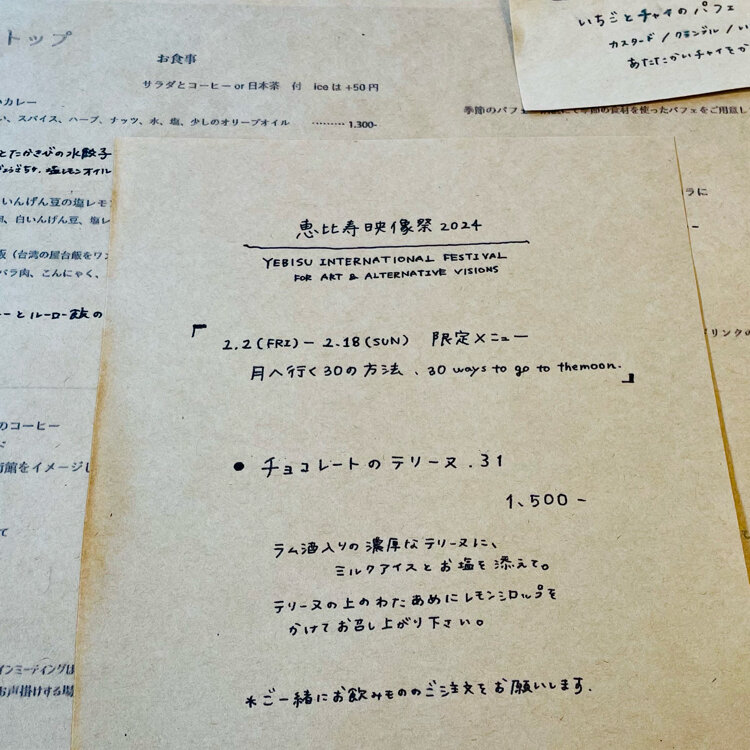 トップ
お食事
サラダとコーヒー or 日本茶　付　ice は +50 円
カレー
い、スパイス、ハーブ、ナッツ、水、塩、少しのオリーブオイル ……… 1,300-
とたかきびの水餃子
塩レモンオイル
いんげん豆の塩レモ
白いんげん豆、塩レ
飯（台湾の屋台飯をワン
バラ肉、こんにゃく、
ーとルーロー飯の
のコーヒー
ド
術館をイメージし
て
インミーティングは
お声掛けする場
いちごとチャイのパフェ
カスタード / クランブル / い
あたたかいチャイをか
季節のパフェ
季節の食材を使ったパフェをご用意し
ラに
ドリンクの
恵比寿映像祭2024
YEBISU INTERNATIONAL FESTIVAL
FOR ART & ALTERNATIVE VISIONS
「2.2(FRI) – 2.18(SUN) 限定メニュー
月へ行く30の方法、30 ways to go to themoon.」
● チョコレートのテリーヌ . 31
1,500 –
ラム酒入りの濃厚なテリーヌに、
ミルクアイスとお塩を添えて。
テリーヌの上のわたあめにレモンシロップを
かけてお召し上がり下さい。
*ご一緒にお飲みもののご注文をお願いします.